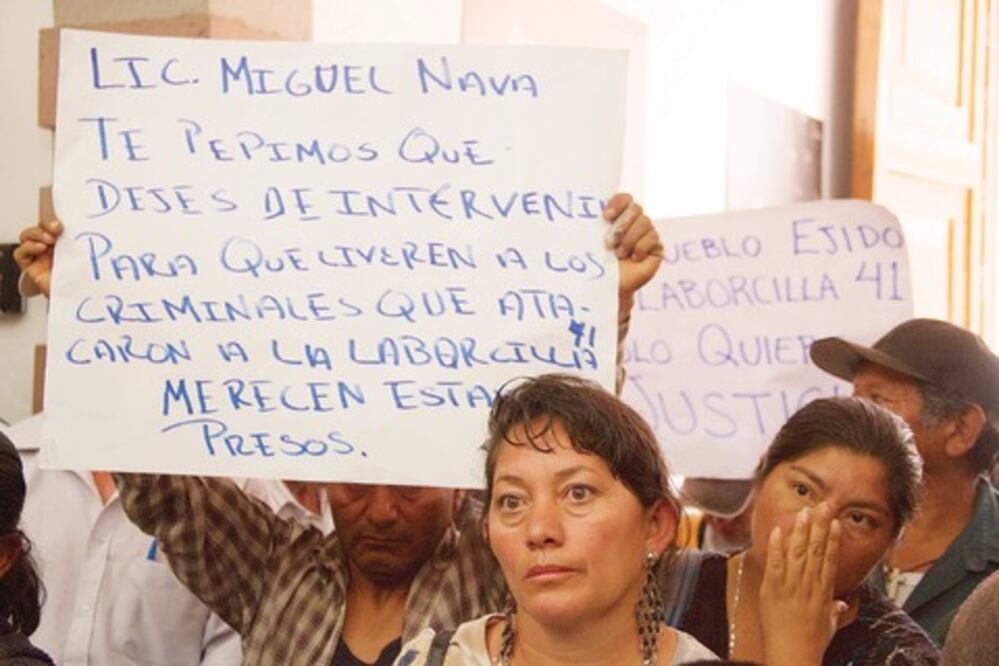 LIC. MIGUEL NAVA
TE PEPIMOS QUE
DEJES DE INTERVENI
PARA QUE LIVEREN A LOS
CRIMINALES QUE ATA-
CARON A LA LABORCILLA 41
MERECEN ESTA
PRESOS.
UEBLO EJIDO
LABORCILLA 41
LO QUIER
JUSTICI